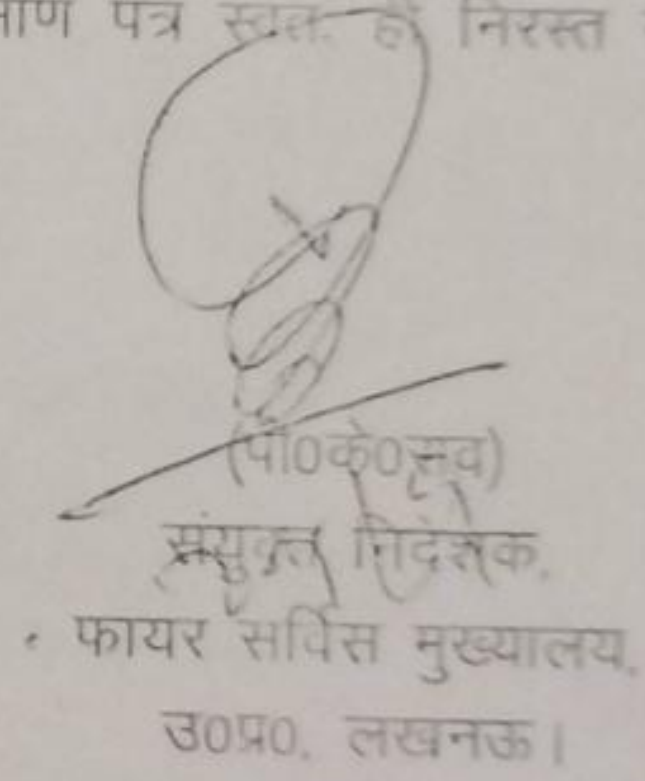 पत्र स्वतः ही निरस्त
(पी०के०राव)
संयुक्त निदेशक,
फायर सर्विस मुख्यालय,
उ०प्र०, लखनऊ।